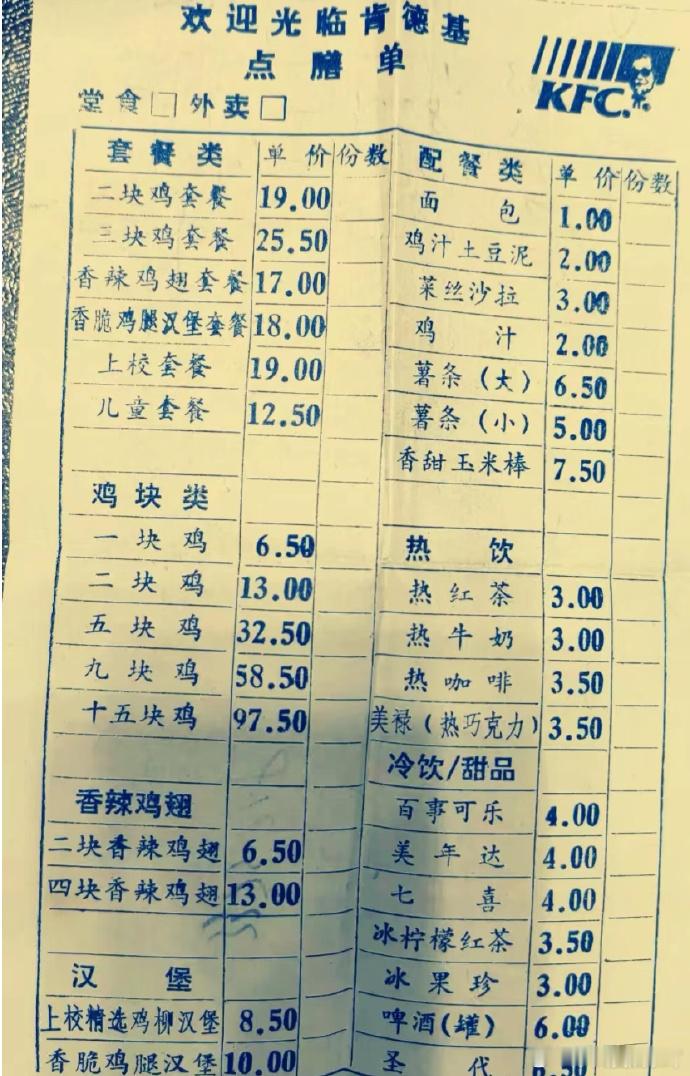 欢迎光临肯德基
点膳单
KFC.
堂食□外卖□
套餐类 单价 份数
二块鸡套餐 19.00
三块鸡套餐 25.50
香辣鸡翅套餐 17.00
香脆鸡腿汉堡套餐 18.00
上校套餐 19.00
儿童套餐 12.50
鸡块类
一块鸡 6.50
二块鸡 13.00
五块鸡 32.50
九块鸡 58.50
十五块鸡 97.50
香辣鸡翅
二块香辣鸡翅 6.50
四块香辣鸡翅 13.00
汉堡
上校精选鸡柳汉堡 8.50
香脆鸡腿汉堡 10.00
配餐类 单价 份数
面包 1.00
鸡汁土豆泥 2.00
菜丝沙拉 3.00
鸡汁 2.00
薯条(大) 6.50
薯条(小) 5.00
香甜玉米棒 7.50
热饮
热红茶 3.00
热牛奶 3.00
热咖啡 3.50
美禄(热巧克力) 3.50
冷饮/甜品
百事可乐 4.00
美年达 4.00
七喜 4.00
冰柠檬红茶 3.50
冰果珍 3.00
啤酒(罐) 6.00
圣代